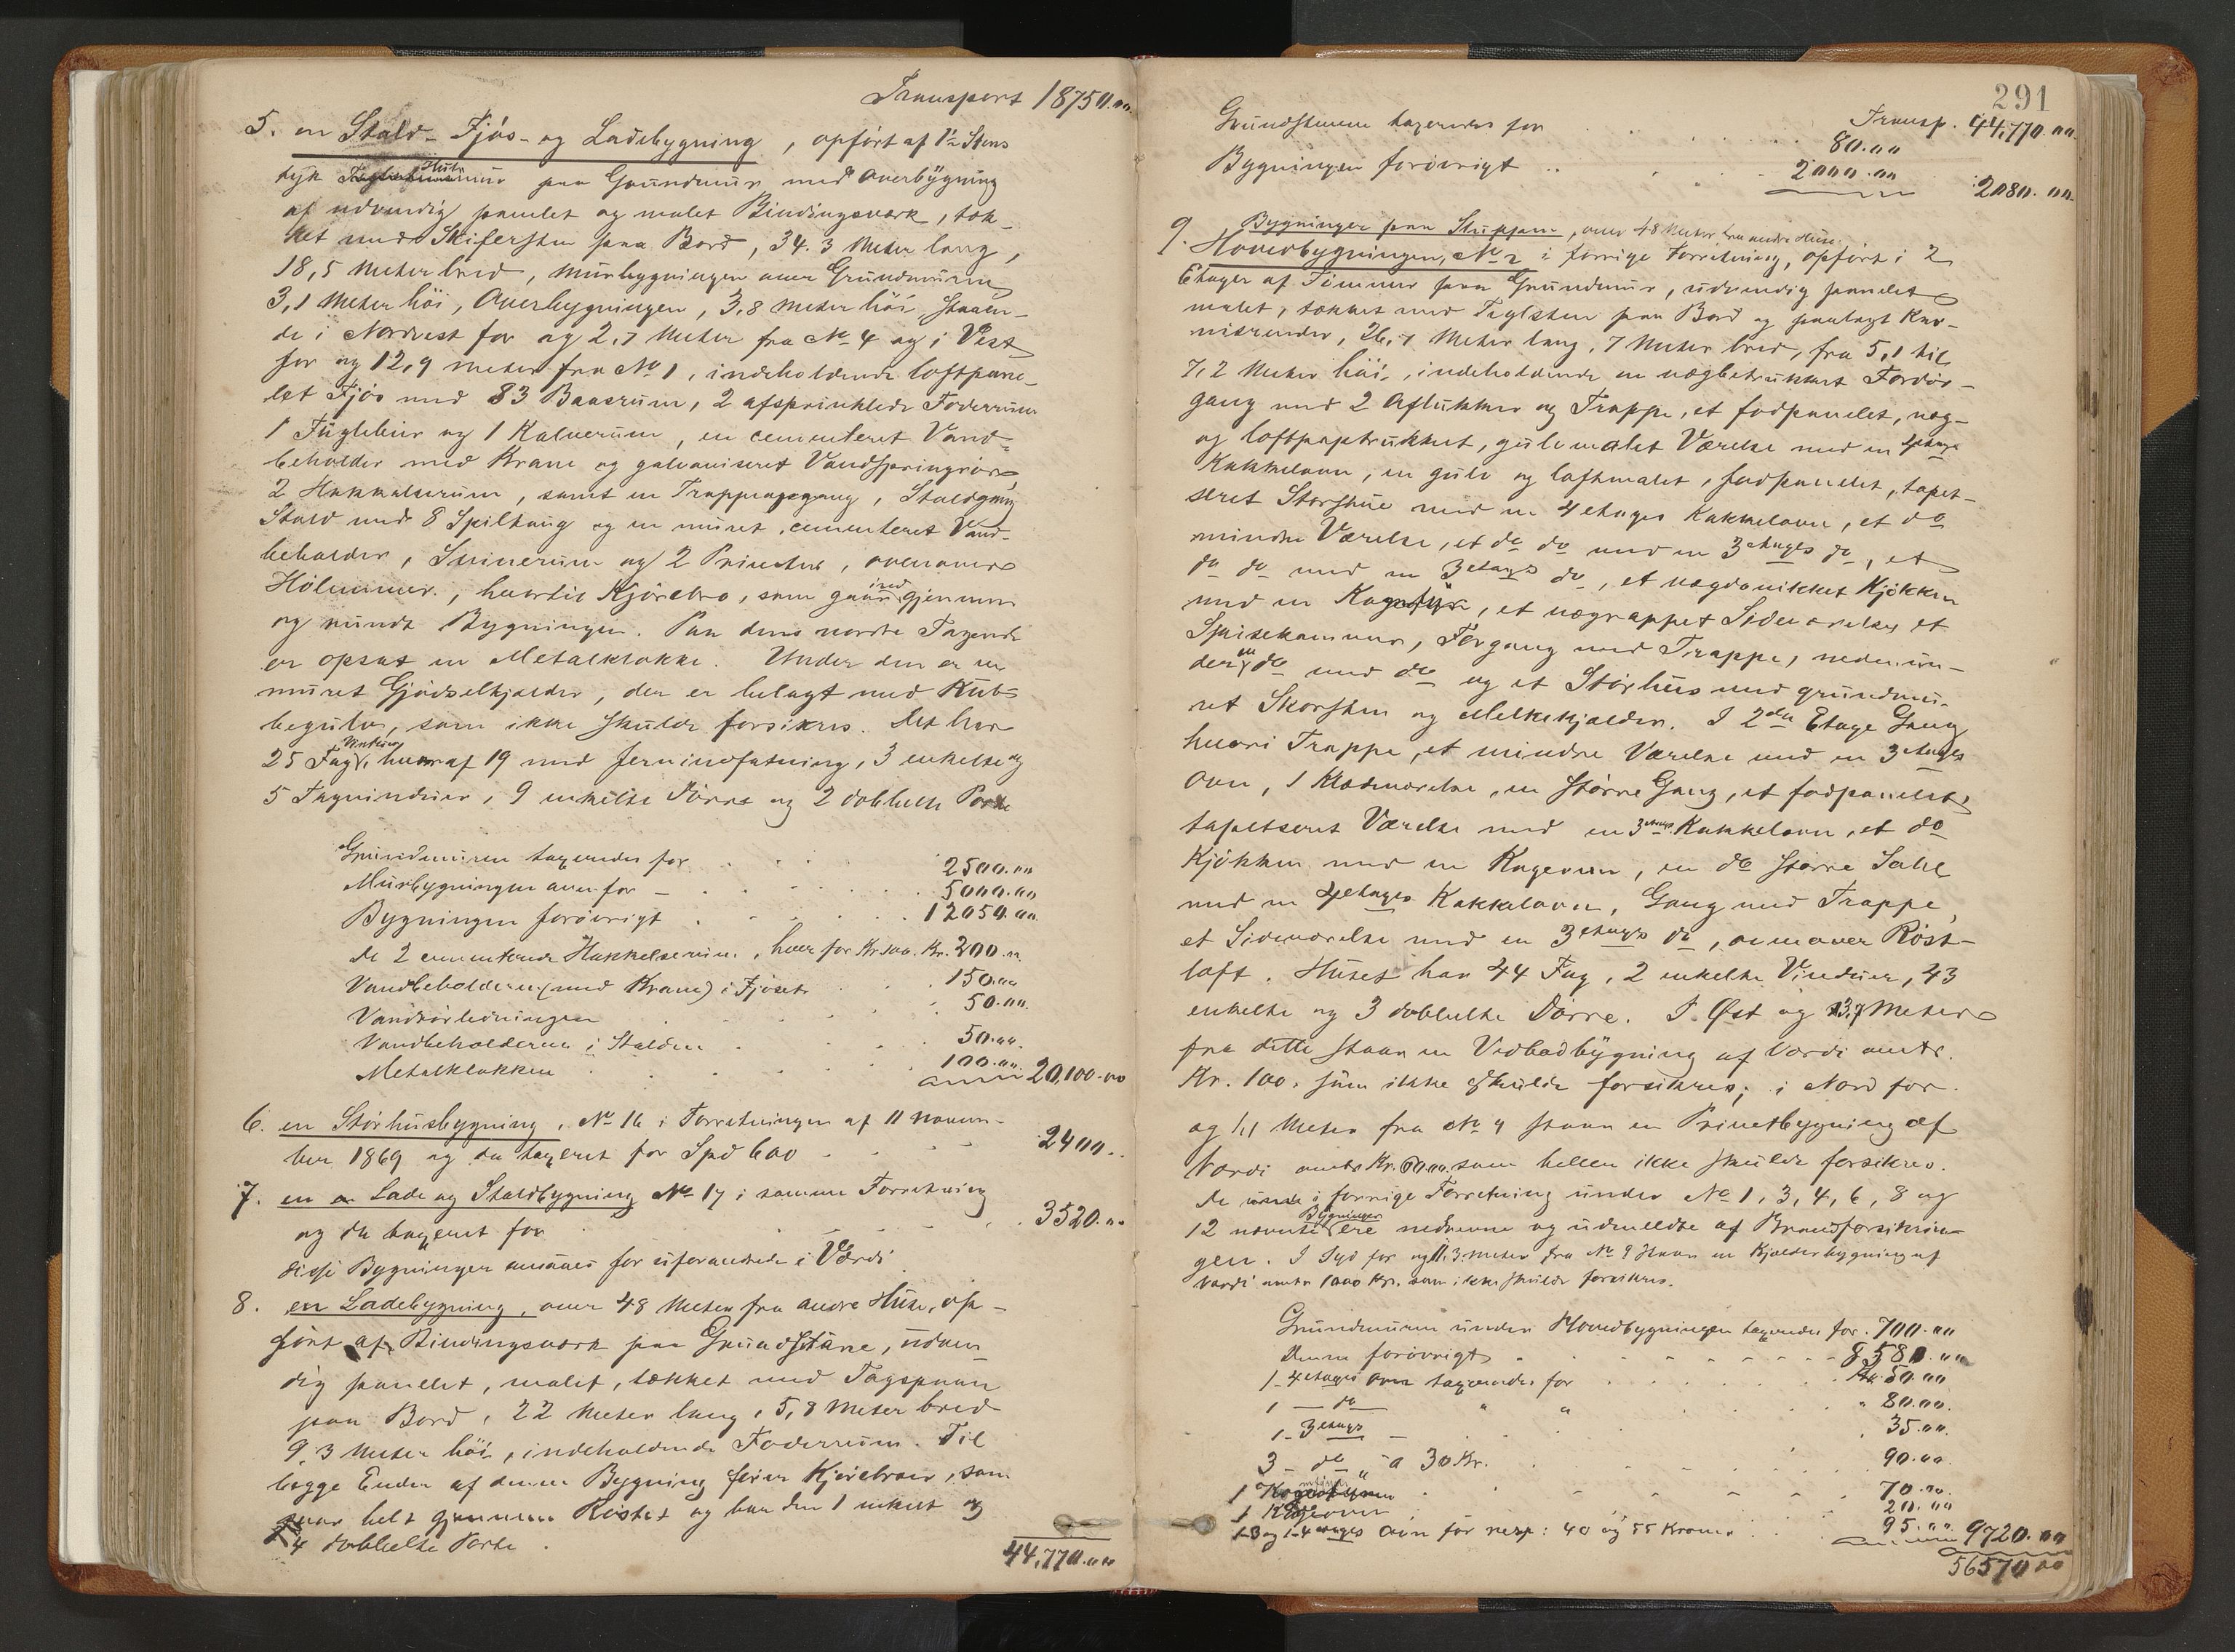 Transport 18750.00
5. en Stald- Fjös- og Ladebygning, opfört af 1½ Stens
tyk Hulmur paa Grundmur med Overbygning
af udvendig panelet og malet Bindingsværk, tæk-
ket med Skifersten paa Bord, 34.3 Meter lang,
18,5 Meter bred, Murbygningen over Grundmuren
3,1 Meter höi, Overbygningen, 3,8 Meter höi, staaen-
de i Nordvest for og 2,7 Meter fra No 4 og i Vest
for og 12,9 Meter fra No 1, indeholdende loftpane-
let Fjös med 83 Baasrum, 2 afsprinklede Foderrum
1 Fuglebur og 1 Kalverum, en cementeret Vand-
beholder med Krane og galvaniseret Vandspringrör,
2 Hakkelserum, samt en Trappeopgang, Staldgang
Stald med 8 Spiltaug og en muret, cementeret Vand-
beholder, Svinerum og 2 Priveter, ovenover
Hölemmer, hvortil Kjörebro, som gaar ind gjennem
og rundt Bygningen. Paa dens nordre Tagende
er opsat en Metalklokke. Under den er en
muret Gjödselkjælder, der er belagt med Kub-
begulv, som ikke skulde forsikres. Det har
25 Fag Vinduer, hvoraf 19 med Jernindfatning, 3 enkelte og
5 Tagvinduer, 9 enkelte Dörre og 2 dobbelte Porte
Grundmuren taxeredes for 2500.00
Murbygningen over for - 5000.00
Bygningen forövrigt 12050.00
de 2 cementerede Hakkelserum, hver for Kr 100. Kr. 200.00
Vandbeholderen (med Krane) i Fjöset 150.00
Vandrörledningen 50.00
Vandbeholderen i Stalden 50.00
Metalklokken 100.00 20,100.00
6. en Störhusbygning, No 16 i Forretningen af 11 Novem-
ber 1869 og da taxeret for Spd 600 2400..
7. en Lade og Staldbygning No 17 i samme Forretning
og da taxeret for 3520.00
disse Bygninger ansaaes for uforandrede i Værdi
8. en Ladebygning, over 48 Meter fra andre Huse, op-
fört af Bindingsværk paa Grundstene, udven-
dig panelet, malet, tækket med Tagspaan
paa Bord, 22 Meter lang, 5,8 Meter bred
9,3 Meter höi, indeholdende Foderrum. Til
begge Ender af denne Bygning förer Kjörebroer, som
gaar helt gjennem Röstet og har den 1 enkelt og
4 dobbelte Porte.
44,770.00
291
Transp. 44,770.00
Grundstenene taxeredes for 80.00
Bygningen forövrigt 2000.00 2080.00
Bygninger paa Stuppen, over 48 Meter fra andre Huse.
9. Hovedbygningen, No 2 i forrige Forretning, opfört i 2
Etager af Tömmer paa Grundmur, udvendig panelet
malet, tækket med Taglsten paa Bord og paalagt Kar-
nisrender, 26,7 Meter lang, 7 Meter bred, fra 5,1 til
7,2 Meter höi, indeholdende en vægbetrukket Fordör-
gang med 2 Aflukker og Trappe, et fodpanelet, væg-
og loftpaptrukket, gulvmalet Værelse med en 4etages
Kakkelovn, en gulv og loftmalet, fodpanelet, tapet-
seret Storstue med en 4 etages Kakkelovn, et do
mindre Værelse, et do do med en 3 etages do, et
do do med en 3etages do, et vægdonikket Kjökken
med en Kogeovn, et vægrappet Sideværelse, et
Spisekammer, Forgang med Trappe, nedenun-
der en do med do og et Störhus med grundmu-
ret Skorsten og Melkekjælder. I 2den Etage Gang
hvori Trappe, et mindre Værelse med en 3 etages
Ovn, 1 Klædeværelse, en större Gang, et fodpanelet,
tapetseret Værelse med en 3 etages Kakkelovn, et do
Kjökken med en Kogeovn, en do större Sahl
med en 4etages Kakkelovn, Gang med Trappe,
et Sideværelse med en 3 etages do, ovenover Röst-
loft. Huset har 44 Fag, 2 enkelte Vinduer, 43
enkelte og 3 dobbelte Dörre. I Øst og 13,7 Meter
fra dette staar en Vedbodbygning af Værdi omtr.
Kr. 100. som ikke skulde forsikres; i Nord for
og 1,1 Meter fra No 9 staar en Privetbygning af
Værdi omtr Kr. 60.00 som heller ikke skulde forsikres.
De i forrige Forretning under No 1, 3, 4, 6, 8 og
12 nævnte Bygninger ere nedrevne og udmeldte af Brandforsikrin-
gen. I Syd for og 11.3 Meter fra No 9 staar en Kjælderbygning af
Værdi omtr 1000 Kr. som ikke skulde forsikres.
Grundmuren under Hovedbygningen taxeredes for 700.00
Denne forövrigt 8580.00
1- 4etages Ovn taxeredes for Kr. 50.00
1 — do " " " 80.00
1- 3 etages — 35.00
3 - do " a 30 Kr. 90.00
1 70.00
1 Kogeovn 20.00
1-3 og 1-4 etages Ovn for resp: 40 og 55 Kroner 95.00 9720.00
56570 00